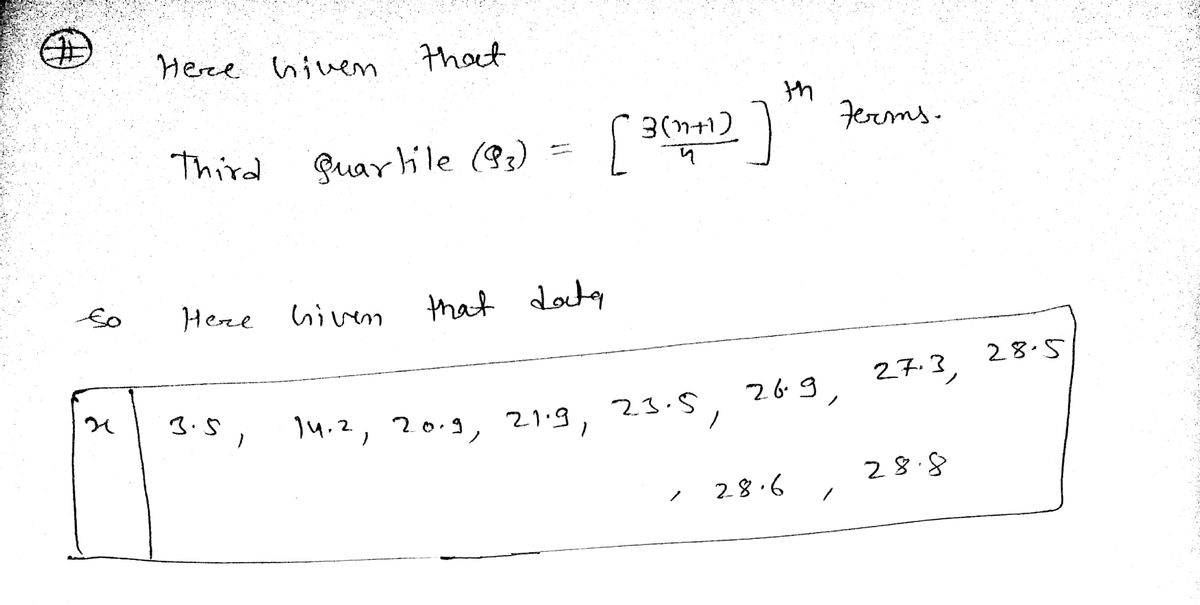 #
Here Given that
Third Quartile (Q3) = [3(n+1)/4]th terms.
So Here Given that data
x 3.5, 14.2, 20.9, 21.9, 23.5, 26.9, 27.3, 28.5
, 28.6, 28.8